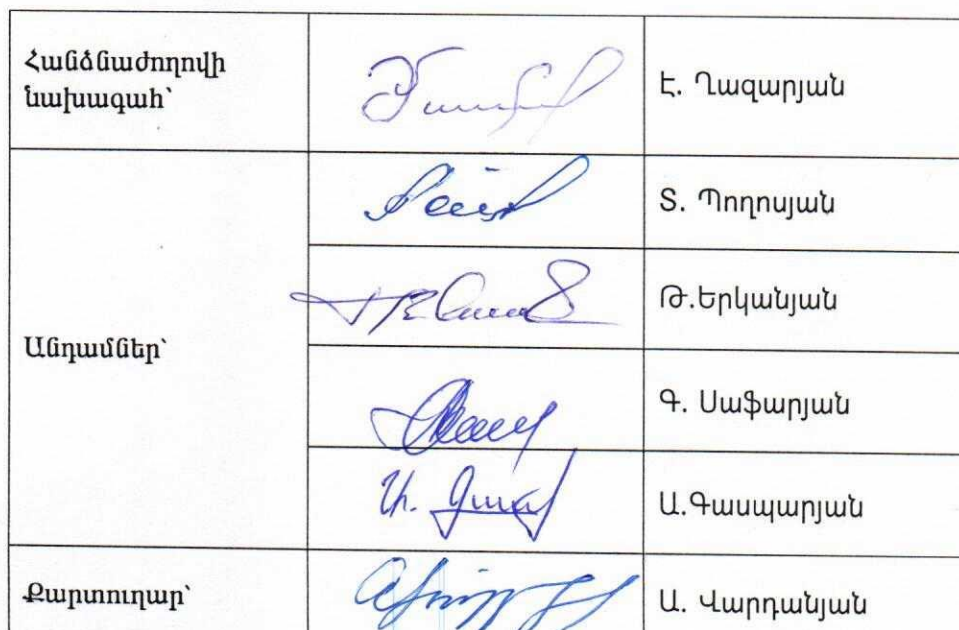 Հանձնաժողովի
նախագահ՝
Է. Ղազարյան
Տ. Պողոսյան
Թ.Երկանյան
Անդամներ՝
Գ. Սաֆարյան
Ա.Գասպարյան
Քարտուղար՝
Ա. Վարդանյան